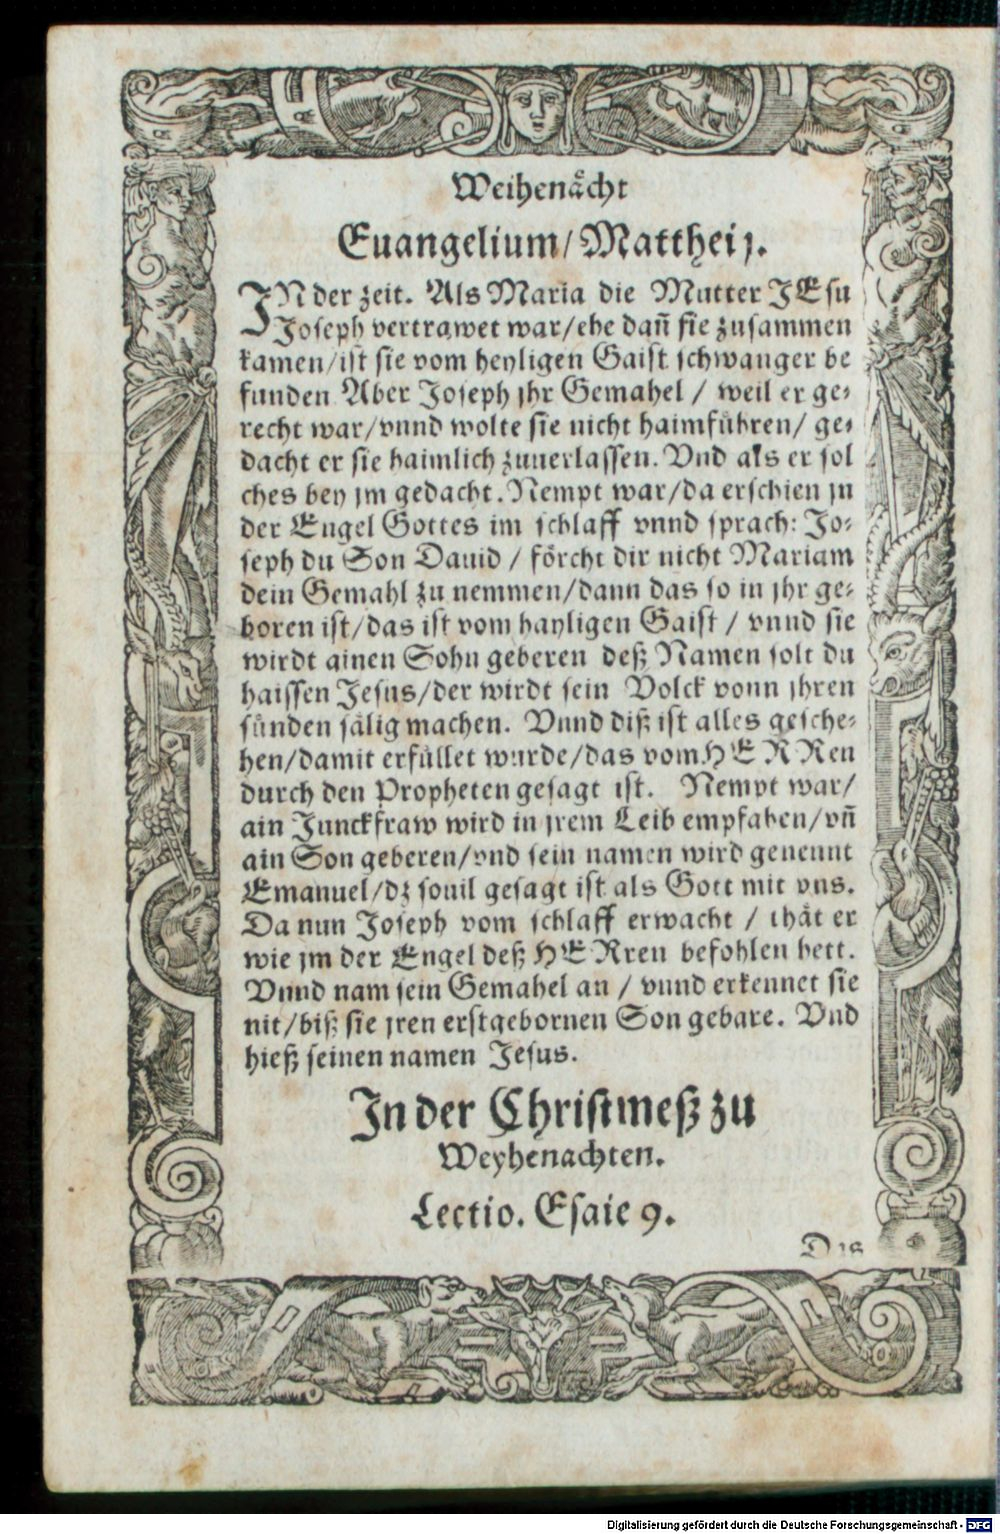 Weihenaͤcht
Euangelium/Matthei j.
IN der zeit. Als Maria die Mutter JEsu
Joseph vertrawet war/ehe dañ sie zusammen
kamen/ist sie vom heyligen Gaist schwanger be
funden Aber Joseph jhr Gemahel / weil er ge⸗
recht war/vnnd wolte sie nicht haimfuͤhren/ ge⸗
dacht er sie haimlich zuuerlassen. Vnd als er sol
ches bey jm gedacht. Nempt war/da erschien jn
der Engel Gottes im schlaff vnnd sprach: Jo⸗
seph du Son Dauid / foͤrcht dir nicht Mariam
dein Gemahl zu nemmen/dann das so in jhr ge⸗
boren ist/das ist vom hayligen Gaist / vnnd sie
wirdt ainen Sohn geberen deß Namen solt du
haissen Jesus/der wirdt sein Volck vonn jhren
suͤnden saͤlig machen. Vnnd diß ist alles gesche⸗
hen/damit erfuͤllet wurde/das vom HERRen
durch den Propheten gesagt ist. Nempt war/
ain Junckfraw wird in jrem Leib empfahen/vñ
ain Son geberen/vnd sein namen wird genennt
Emanuel/dz souil gesagt ist als Gott mit vns.
Da nun Joseph vom schlaff erwacht / thaͤt er
wie jm der Engel deß HERren befohlen hett.
Vnnd nam sein Gemahel an / vnnd erkennet sie
nit/biß sie jren erstgebornen Son gebare. Vnd
hieß seinen namen Jesus.
In der Christmeß zu
Weyhenachten.
Lectio. Esaie 9.
Das
Digitalisierung gefördert durch die Deutsche Forschungsgemeinschaft - DFG